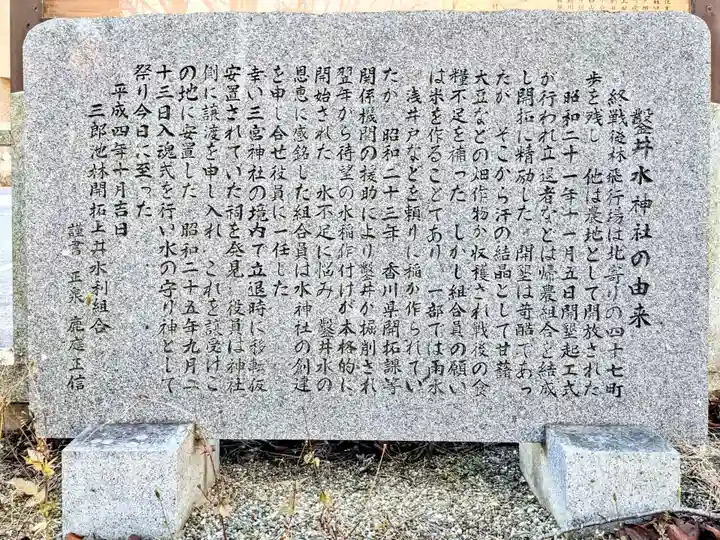 鑿井水神社の由来
終戦後林飛行場は北寄りの四十七町
歩を残し 他は農地として開放された
昭和二十一年十一月五日開墾起工式
が行われ立退者などは帰農組合を結成
し開拓に精励した 開墾は苛酷であっ
たが そこから汗の結晶として甘藷
大豆などの畑作物が収穫され戦後の食
糧不足を補った しかし組合員の願い
は米を作ることであり 一部では雨水
浅井戸などを頼りに稲が作られてい
たが 昭和二十三年 香川県開拓課等
関係機関の援助により鑿井が掘削され
翌年から待望の水稲作付けが本格的に
開始された 水不足に悩み 鑿井水の
恩恵に感銘した組合員は水神社の創建
を申し合せ役員に一任した
幸い三宮神社の境内で立退時に移転仮
安置されていた祠を発見 役員は神社
側に譲渡を申し入れ これを譲受けこ
の地に安置した 昭和二十五年九月二
十三日入魂式を行い水の守り神として
祭り今日に至った
平成四年十月吉日
三郎池林開拓上井水利組合
謹書 正泉 鹿庭正信